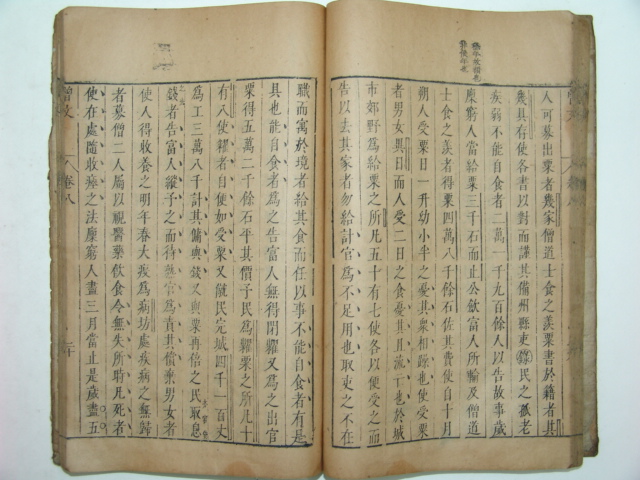 人可募出粟者幾家僧道士食之羨粟書於籍者其
幾具存使各書以對而謹其備州縣吏錄民之孤老
疾弱不能自食者二萬一千九百餘人以告故事歲
廩窮人當給粟三千石而止公斂富人所輸及僧道
士食之羨者得粟四萬八千餘石佐其費使自十月
朔人受粟日一升幼小半之憂其衆相蹂也使受粟
者男女異日而人受二日之食憂其且流亡也於城
市郊野爲給粟之所凡五十有七使各以便受之而
告以去其家者勿給計官爲不足用也取吏之不在
職而寓於境者給其食而任以事不能自食者有是
具也能自食者爲之告富人無得閉糶又爲之出官
粟得五萬二千餘石平其價予民爲糶粟之所凡十
有八使糴者自便如受粟又僦民完城四千一百丈
爲工三萬八千計其傭與錢又與粟再倍之民取息
錢者告富人縱予之而待熟官爲責其償棄男女者
使人得收養之明年春大疫爲病坊處疾病之無歸
者募僧二人屬以視醫藥飲食令無失所時凡死者
使在處隨收瘞之法廩窮人盡三月當止是歲盡五
曾文
卷八
二十